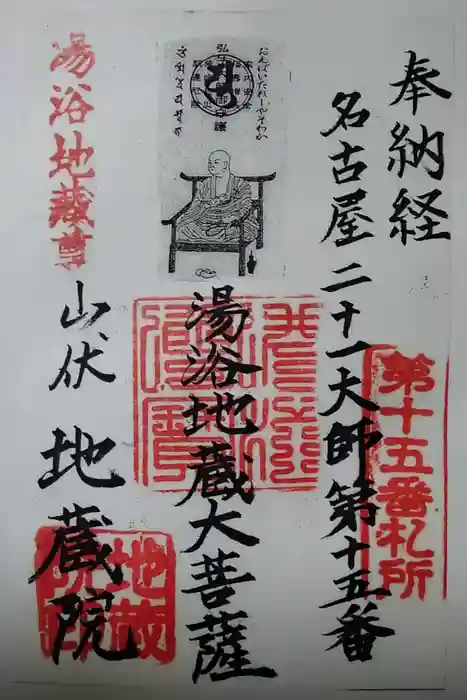 奉納経
名古屋二十一大師第十五番
第十五番札所
おんばいたれいやそわか
弘
御守護
湯浴地蔵大菩薩
湯浴地蔵尊
山伏 地蔵院
地蔵院